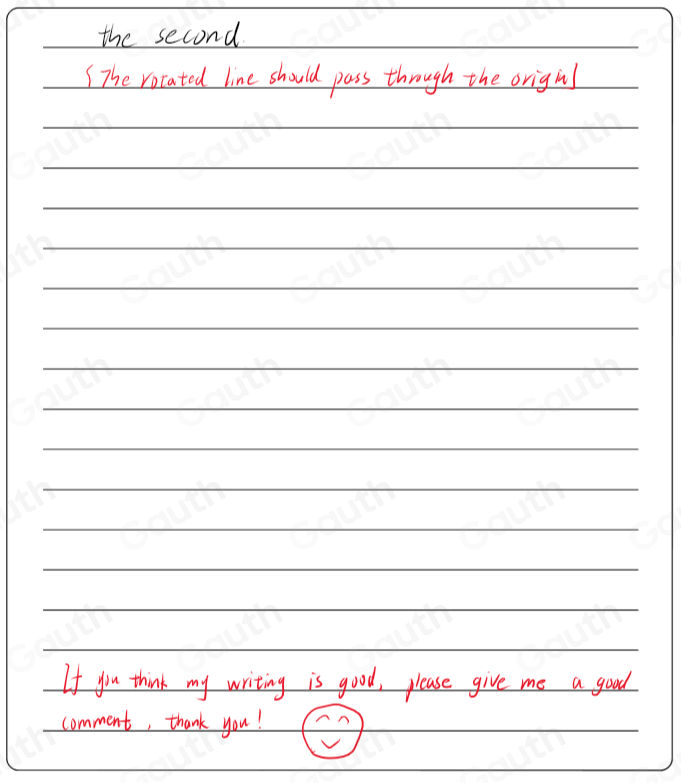 the second.
{The rotated line should pass through the origin}
If you think my writing is good, please give me a good
comment, thank you!